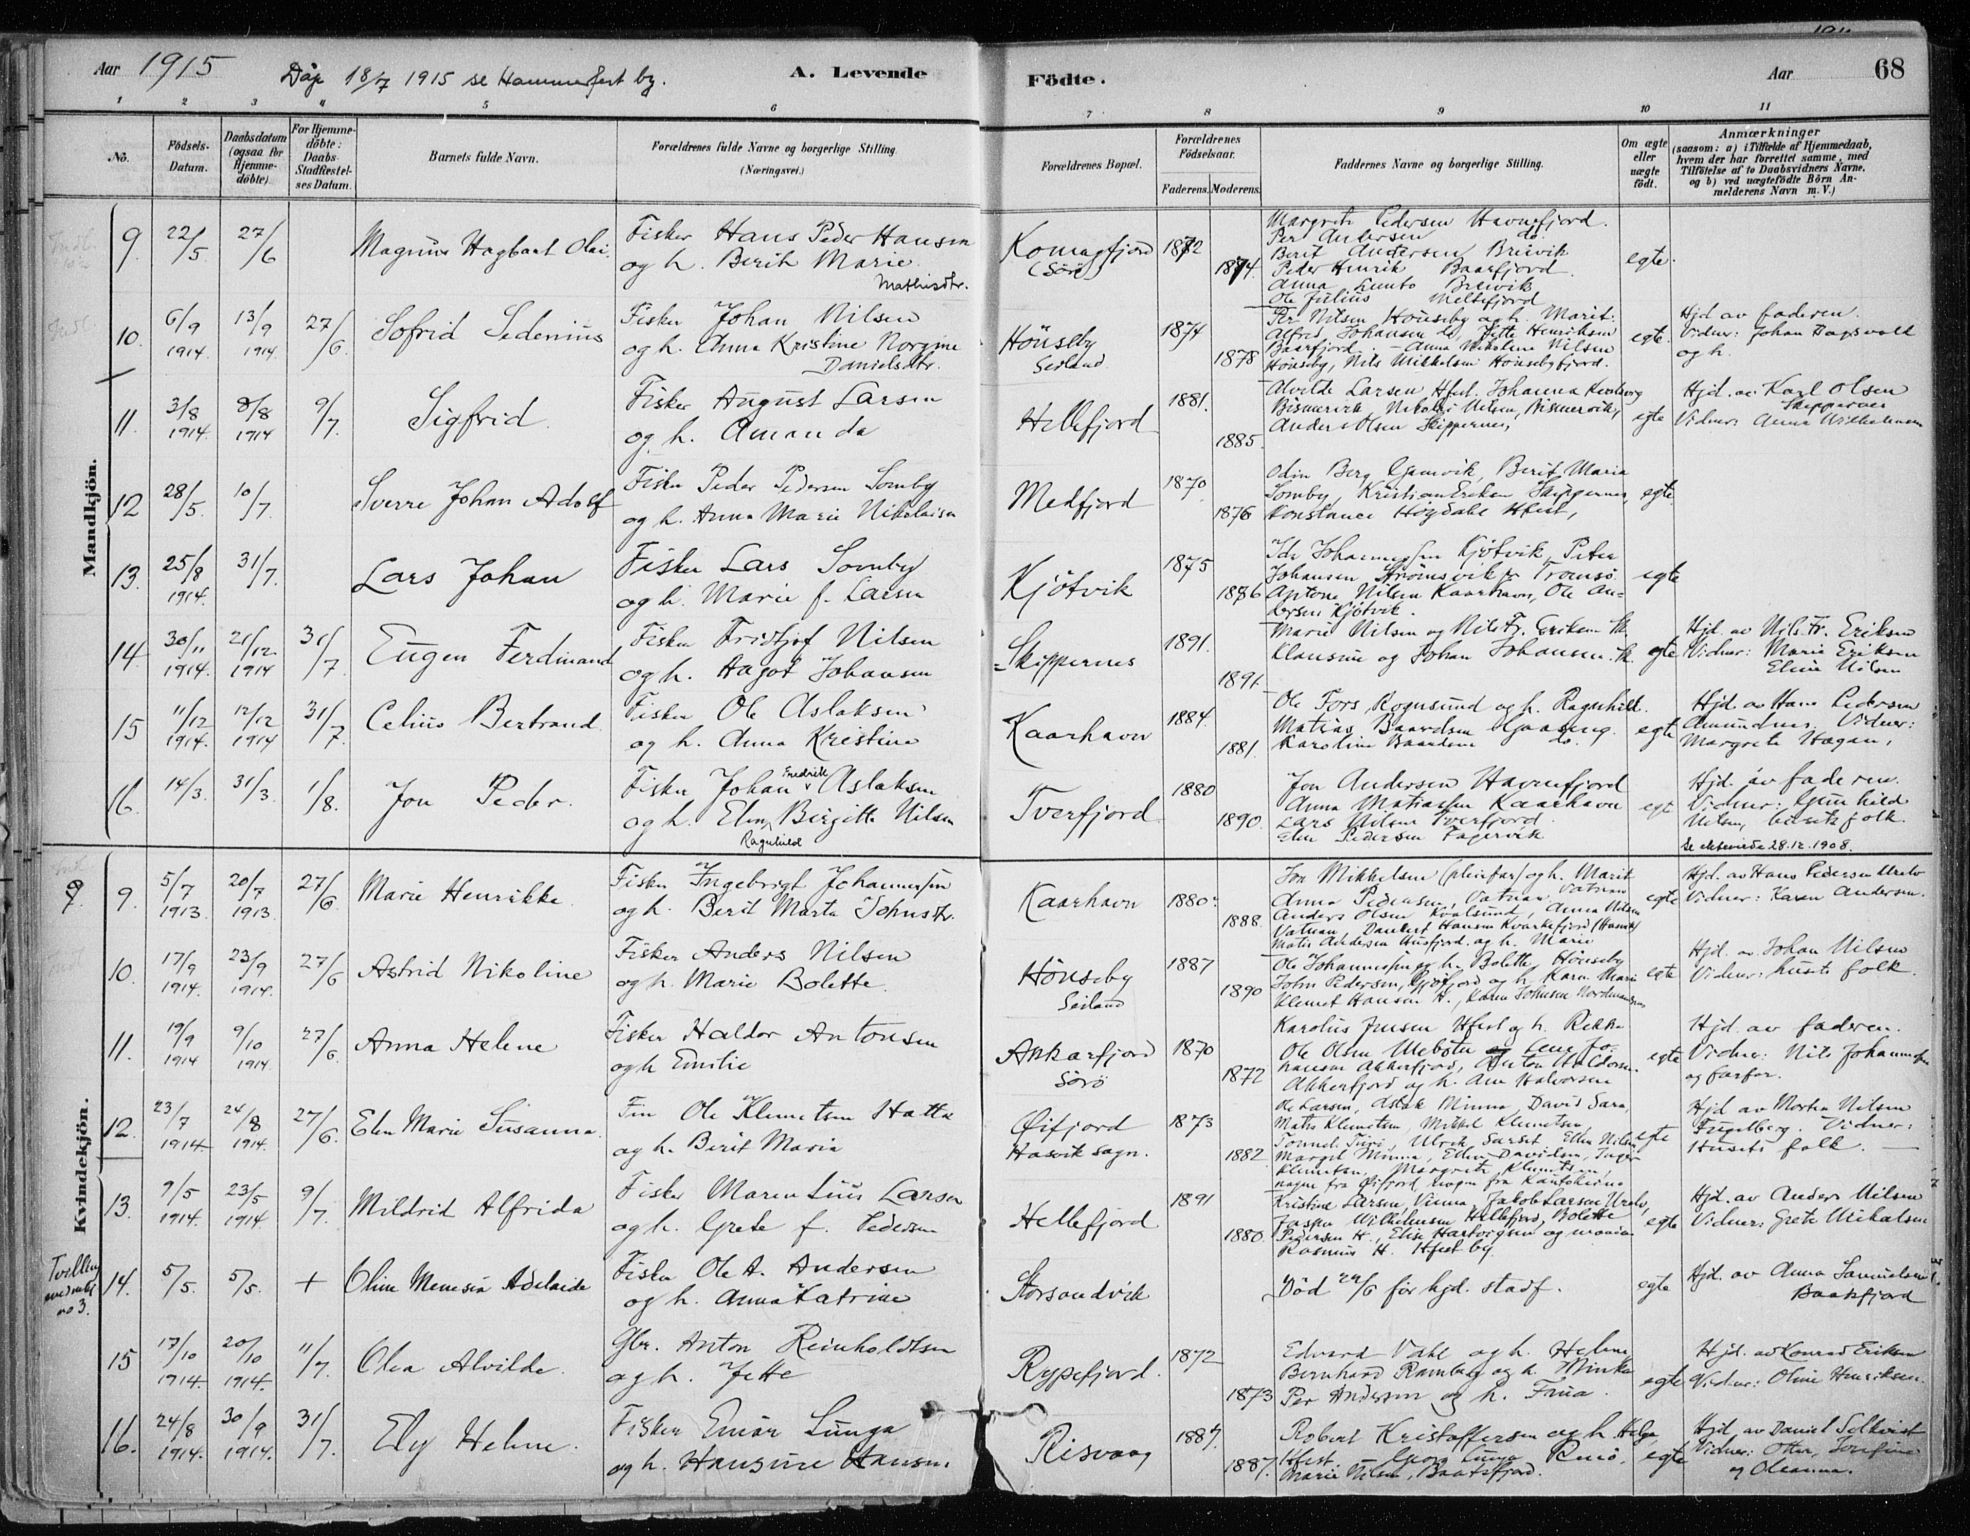 Aar 1915
Dåp 18/7 1915 se Hammerfest by.
A. Levende
Födte.
Aar
68
1 2 3 4 5 6 7 8 9 10 11
No.
Födsels-Datum.
Daabsdatum (ogsaa for Hjemme-döbte)
For Hjemme-döbte: Daabs-Stadfæstel-ses Datum.
Barnets fulde Navn.
Forældrenes fulde Navne og borgerlige Stilling (Næringsvei.)
Forældrenes Bopæl.
Forældrenes Födselsaar.
Faderens. Moderens.
Faddernes Navne og borgerlige Stilling.
Om ægte eller uægte født.
Anmærkninger
(saasom: a) i Tilfælde af Hjemmedaab,
hvem der har forrettet samme, med
Tilföielse af to Daabsvidners Navne,
og b) ved uægtefödte Börn An-
melderens Navn m. V.)
Mandkjön.
9. 22/5 27/6 Magnus Hagbart Olai.
Fisker Hans Peder Hansen
og h. Berit Marie
Mathisdtr.
Komagfjord
(Sørø)
1872
1874.
Margrete Pedersen Havnefjord.
Per Andersen do.
Berit Andersen Breivik
Peder Henrik Baarfjord.
Anna Breivik
Ole Julius Meltefjord
egte.
10. 6/9 1914. 13/9 1914. 27/6 Sofrid Sedenius
Fisker Johan Nilsen
og h. Anna Kristine Norgine
Danielsdtr.
Hönseby
Seiland
1874
1878
Per Nilsen Hönseby og h. Marit.
Alfred Johansen Jette Henriksen
Baarfjord, Anna Nikoline Nilsen
Hönseby, Nils Mikkelsen Hönsebyfjord.
egte.
Hjd av faderen.
Vidner: Johan
og h.
11. 3/8 1914. 8/8 1914 9/7. Sigfrid
Fisker August Larsen
og h. Amanda
Hellefjord
1881.
1885.
Alvilde Larsen Hfest. Johanna
Bismervik, Nikolai Nilsen, Bismervik,
Anders Olsen Skippernes,
egte
Hjd. av Karl Olsen
Skippernes
Vidner: Anna Wilhelmsen
12 28/5. 10/7. Sverre Johan Adolf
Fisker Peder Pedersen Somby
og h. Anna Marie Nikolaisen
Medfjord
1870
1876
Odin Berg Gamvik, Berit Maria
Somby, Kristian Eriksen Skippernes,
Konstance Høgdahl Hfest,
egte
13. 25/8 1914. 31/7. Lars Johan
Fisker Lars Somby
og h. Marie f. Larsen
Kjötvik
1875
1886
Ida Johannessen Kjøtvik, Peter
Johansen Strömsvik pr Tromsö
Antone Nilsen Kaarhavn, Ole An-
dersen Kjøtvik.
egte
14 30/11 1914. 21/12. 1914 31/7. Eugen Ferdinand
Fisker Fridtjof Nilsen
og h. Aagot Johansen
Skippernes
1891.
1891.
Marie Nilsen og Nils Fr. Eriksen Sk.
Klausine og Johan Johansen Sk.
egte
Hjd. av Nils Fr. Eriksen
Vidner: Marie Eriksen
Eline Nilsen
15 11/12 1914. 12/12 1914 31/7. Celius Bertrand
Fisker Ole Aslaksen
og h. Anna Kristine
Kaarhavn
1884.
1881.
Ole Fors, Rognsund og h. Ragnhild.
Matias Baardsen
Karoline Baardsen do.
egte
Hjd. av Hans Pedersen
Amundnes Vidner:
Margrete Hagan,
16. 14/3. 31/3. 1/8. Jon Peder.
Fisker Johan Fredrik Aslaksen
og h. Elen Birgitte Nilsen
Ragnhild
Tverfjord
1880
1890.
Jon Andersen Havnefjord
Anna Matiassen Kaarhavn
Lars Nilsen Tverfjord.
Elen Pedersen Fagervik
egt
Hjd. av faderen.
Vidner: Gunhild
Nilsen, husets folk.
28.12.1908.
Kvindekjön.
9. 5/7 1913 20/7 1913 27/6 Marie Henrikke.
Fisker Ingebrigt Johannessen
og h. Berit Marta Johnsdtr.
Kaarhavn
1880.
1888.
Jon Mikkelsen (pleiefar) og h. Marit
Vatnan
Anna Pedersen, Vatnan
Anders Olsen Kvalsund, Anna Nilsen
Vatnan, Dankert Hansen
Mats Andersen og h. Marie
egte
Hjd. av Hans Pedersen
Vidner: Karen Andersen.
10. 17/9 1914. 23/9 1914. 27/6 Astrid Nikoline
Fisker Anders Nilsen
og h. Marie Bolette.
Hönseby
Seiland
1887
1890
Ole Johannessen og h. Bolette Hönseby
John Pedersen, og h. Karen Marie
Klemet Hansen H., Karen Johnsen
egte
Hjd. av Johan Nilsen
Vidner: husets folk.
11. 19/9 1914 9/10 1914. 27/6. Anna Helene
Fisker Haldor Antonsen
og h Emilie
Ankarfjord
Sörö
1870
1872
Karolus Jensen Hfest og h. Rikka
Ole Olsen Lene Jo-
hansen Akkerfjord, Anton Haldorsen
Akkerfjord og h. Ane Halvorsen
egte
Hjd. av faderen.
Vidner: Nils Johannessen
og farfar.
12. 23/7 1914 24/8 1914. 27/6. Elen Marie Susanna.
Fin Ole Klemetsen Hætta
og h. Berit Maria
Øifjord
Hasvik sogn.
1873
1882.
Ole Larsen, Aslak Minna, David Sara,
Mats Klemetsen, Mikkel Klemetsen,
Turi, Ulrik Sarset, Ellen Nilsen
Margit Minna, Ellen Davidsen, Inger
Klemetsen, Margrete Klemetsen,
fra Øifjord sogn fra Kautokeino
egte
Hjd av Morten Nilsen
Fuglberg. Vidner:
Husets folk.
13. 9/5 1914. 23/5 1914. 9/7. Mildrid Alfrida
Fisker Maren Larsen
og h. Grete f. Pedersen
Hellefjord
1891
1880.
Kristine Larsen, Jakob Larsen
Jasper Wilhelmsen Hellefjord, Bolette
Pedersen H., Elise Hartvigsen og
Rasmus H. Hfest by
egte
Hjd. av Anders Nilsen
Vidner: Grete Mikalsen
Tvilling
med
no 3.
14. 5/5. 5/5. + Oline Adelaide
Fisker Ole A. Andersen
og h. Anna Katrine
Storsandvik
Död 24/6 för hjd. stadf.
egte
Hjd. av Anna Samuelsen
Baakfjord
15 17/10 1914. 20/10 1914. 11/7. Olea Alvilde.
Gbr. Anton Reinholdtsen
og h. Jette
Rypefjord.
1872
1873
Edvard Dahl og h. Helene
Bernhard Ramberg og h. Minka
Per Andersen og h. Frua.
egte
Hjd. av Konrad Eriksen
Vidner: Oline Henriksen.
16. 24/8 1914. 30/9 1914. 31/7. Ely Helene.
Fisker Einar Lunga
og h. Hansine Hansen.
Risvaag
1887.
1887.
Robert Kristoffersen og h. Helga
Hfest. Georg Lunga
Marie Nilsen, Baatsfjord.
egte
Hjd. av Daniel Selkvist
Vidner: Otter, Josefine
og Oleanna.